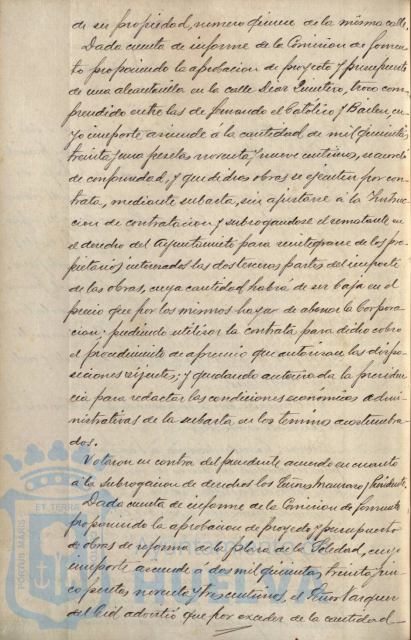 de su propiedad, número quince de la misma calle.
Dada cuenta de informe de la Comisión de fomen-
to proponiendo la aprobacion de proyecto y presupuesto
de una alcantarilla en la calle Diaz Quintero, trozo com-
prendido entre las de Fernando el Católico y Bailen, cu-
yo importe asciende á la cantidad de mil quinientas
treinta y una pesetas noventa y nueve centimos, se acordó
de conformidad, y que dichas obras se ejecuten por con-
trata, mediante subasta, sin ajustarse á la Instruc-
cion de contratacion y subrogandose el rematante en
el derecho del Ayuntamiento para reintegrarse de los pro-
pietarios interesados las dos terceras partes del importe
de las obras, cuya cantidad habrá de ser baja en el
precio que por los mismos haya de abonar la Corpora-
cion: pudiendo utilizar la contrata para dicho cobro
el procedimiento de apremio que autorizan las dispo-
siciones vijentes; y quedando autorizada la presiden-
cia para redactar las condiciones económico admi-
nistrativas de la subasta en los terminos acostumbra-
dos.
Votaron en contra del precedente acuerdo en cuanto
á la subrogacion de derechos los Señores y Presidente.
Dada cuenta de informe de la Comision de fomento
proponiendo la aprobacion de proyecto y presupuesto
de obras de reforma de la plaza de la Soledad, cuyo
importe asciende á dos mil quinientas treinta y cin-
co pesetas noventa y tres centimos, el Señor Vazquez
del Cid advirtió que por exceder de la cantidad
ET TERRAE
PORTUS MARIS
Ayuntamiento de
HUELVA